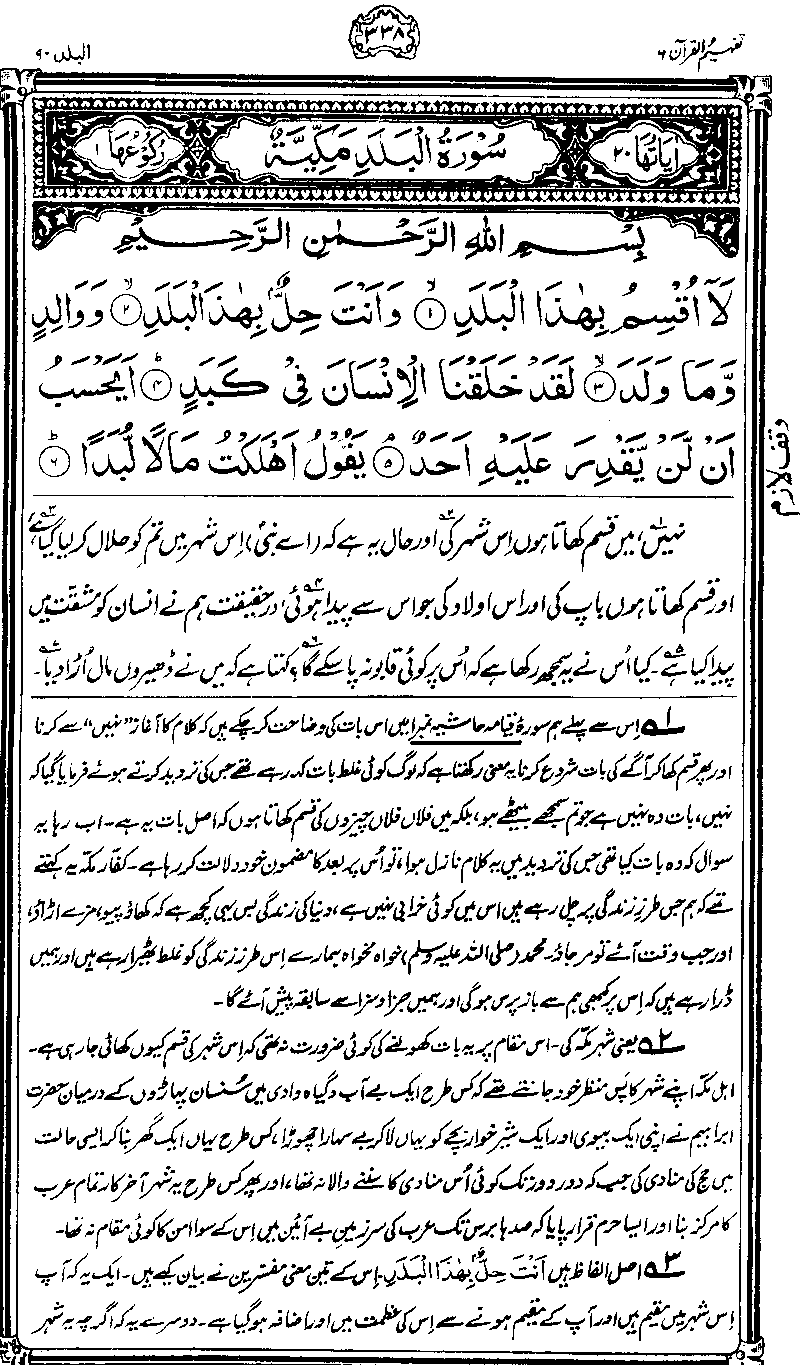 تفہیم القرآن ۶
۳۳۸
البلد ۹۰
اٰيَاتُهَا ۲۰
سُوْرَةُ الْبَلَدِ مَكِّيَّةٌ
رُكُوْعُهَا ۱
بِسْمِ اللهِ الرَّحْمٰنِ الرَّحِيْمِ
لَآ اُقْسِمُ بِهٰذَا الْبَلَدِ ۱ وَاَنْتَ حِلٌّۢ بِهٰذَا الْبَلَدِ ۲ وَوَالِدٍ
وَّمَا وَلَدَ ۳ لَقَدْ خَلَقْنَا الْاِنْسَانَ فِيْ كَبَدٍ ۴ اَيَحْسَبُ
اَنْ لَّنْ يَّقْدِرَ عَلَيْهِ اَحَدٌ ۵ يَقُوْلُ اَهْلَكْتُ مَالًا لُّبَدًا ۶
وقف لازم
نہیں،۱ میں قسم کھاتا ہوں اِس شہر کی۲ اور حال یہ ہے کہ (اے نبیؐ) اِس شہر میں تم کو حلال کر لیا گیا ہے۳
اور قسم کھاتا ہوں باپ کی اور اس اولاد کی جو اس سے پیدا ہوئی،۴ درحقیقت ہم نے انسان کو مشقت میں
پیدا کیا ہے۵۔ کیا اُس نے یہ سمجھ رکھا ہے کہ اُس پر کوئی قابو نہ پا سکے گا؟۶ کہتا ہے کہ میں نے ڈھیروں مال اُڑا دیا۔
۱ اِس سے پہلے ہم سورۂ قیامہ حاشیہ نمبر۱ میں اس بات کی وضاحت کر چکے ہیں کہ کلام کا آغاز ”نہیں“ سے کرنا
اور پھر قسم کھا کر آگے کی بات شروع کرنا یہ معنی رکھتا ہے کہ لوگ کوئی غلط بات کہہ رہے تھے جس کی تردید کرتے ہوئے فرمایا گیا کہ
نہیں، بات وہ نہیں ہے جو تم سمجھے بیٹھے ہو، بلکہ میں فلاں فلاں چیزوں کی قسم کھاتا ہوں کہ اصل بات یہ ہے۔ اب رہا یہ
سوال کہ وہ بات کیا تھی جس کی تردید میں یہ کلام نازل ہوا، تو اُس پر بعد کا مضمون خود دلالت کر رہا ہے۔ کفارِ مکہ یہ کہتے
تھے کہ ہم جس طرزِ زندگی پر چل رہے ہیں اس میں کوئی خرابی نہیں ہے، دنیا کی زندگی بس یہی کچھ ہے کہ کھاؤ پیو، مزے اڑاؤ،
اور جب وقت آئے تو مر جاؤ۔ محمد (صلی اللہ علیہ وسلم) خواہ مخواہ ہمارے اِس طرزِ زندگی کو غلط ٹھیرا رہے ہیں اور ہمیں
ڈرا رہے ہیں کہ اِس پر کبھی ہم سے باز پرس ہوگی اور ہمیں جزا و سزا سے سابقہ پیش آئے گا۔
۲ یعنی شہر مکہ کی۔ اس مقام پر یہ بات کھولنے کی کوئی ضرورت نہ تھی کہ اِس شہر کی قسم کیوں کھائی جا رہی ہے۔
اہل مکہ اپنے شہر کا پس منظر خود جانتے تھے کہ کس طرح ایک بے آب و گیاہ وادی میں سُنسان پہاڑوں کے درمیان حضرت
ابراہیم نے اپنی ایک بیوی اور ایک شیر خوار بچے کو یہاں لا کر بے سہارا چھوڑا، کس طرح یہاں ایک گھر بنا کر ایسی حالت
میں حج کی منادی کی جب کہ دور دور تک کوئی اُس منادی کا سننے والا نہ تھا، اور پھر کس طرح یہ شہر آخر کار تمام عرب
کا مرکز بنا اور ایسا حرم قرار پایا کہ صدہا برس تک عرب کی سرزمین بے آئین میں اِس کے سوا امن کا کوئی مقام نہ تھا۔
۳ اصل الفاظ ہیں اَنْتَ حِلٌّۢ بِهٰذَا الْبَلَدِ۔ اِس کے تین معنی مفسرین نے بیان کیے ہیں۔ ایک یہ کہ آپ
اِس شہر میں مقیم ہیں اور آپ کے مقیم ہونے سے اِس کی عظمت میں اور اضافہ ہو گیا ہے۔ دوسرے یہ کہ اگرچہ یہ شہر